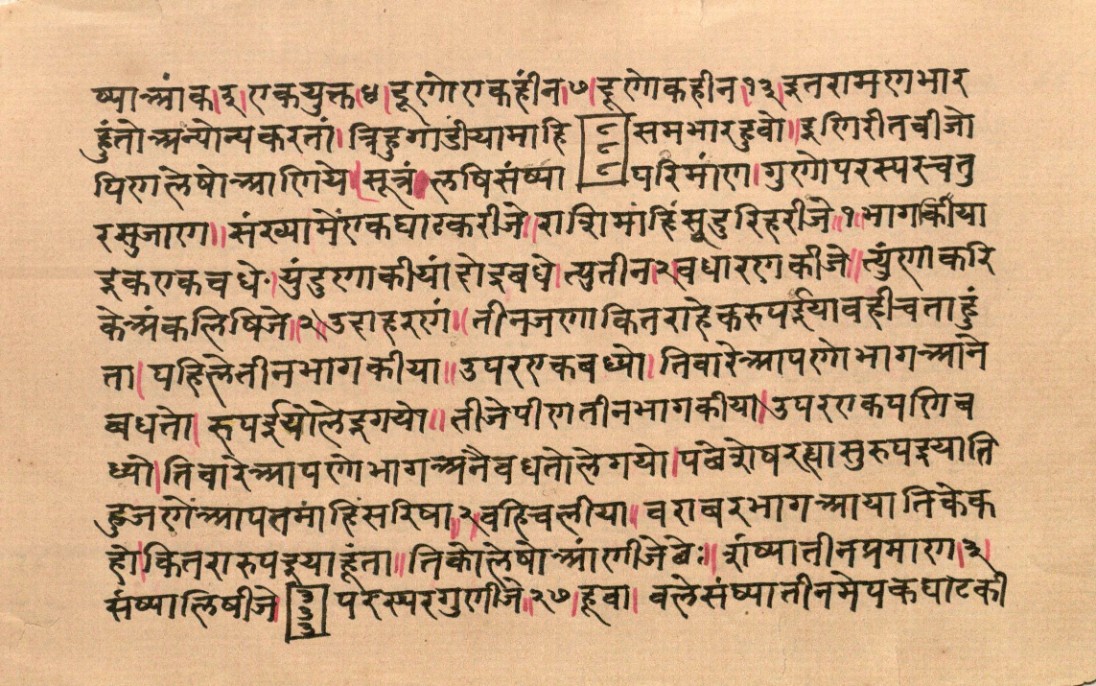 ष्याआंक।३।एकयुक्त।४।दूणोएकहीन।७।दूणोकहीन।१३।इतरामणभार
हुंतोअन्योन्यकरतां।त्रिहुगाडीयामाहि ८ ८ ८ समभारहुवो॥इणिरीतबीजो
पिणलेषोआणिये।सूत्रं।लषिसंष्या परिमांण।गुणोपरस्पस्चतु
रसुजाण॥संख्यामेंएकघाटकरीजे॥राशिमांहिंसूदुरिहरीजे॥१॥भागकीया
इकएकवधे।युंदुणाकीयांहोइबधे।त्युतीन२वधारणकीजे॥त्युंणाकरि
केअंकलिषिजे॥२॥उदाहरणं॥तीनजणाकितराहेकरुपईयावहीचताहुं
ता।पहिलेतीनभागकीया॥उपरएकबध्यो।तिवारेआपणोभागआने
बधतो।रूपईयोलेइगयो॥तीजेपीणतीनभागकीया।उपरएकपणिब
ध्यो।तिवारेआपणोभागअनैवधतोलेगयो।पंबेशेषरह्यासुरुपइयाति
हुजणेंआपतमांहिंसरिषा॥२वहिचलीया॥बराबरभागआयातिकेक
हो।कितरारुपइयाहूंता॥तिकोलेषोआंणीजेबेः॥रांष्यातीनप्रमाण।३।
संष्यालिषीजे। ३ ३ ३ परस्परगुणीजे॥२७।हूवा।वलेसंष्यातीनमेएकघाटकी